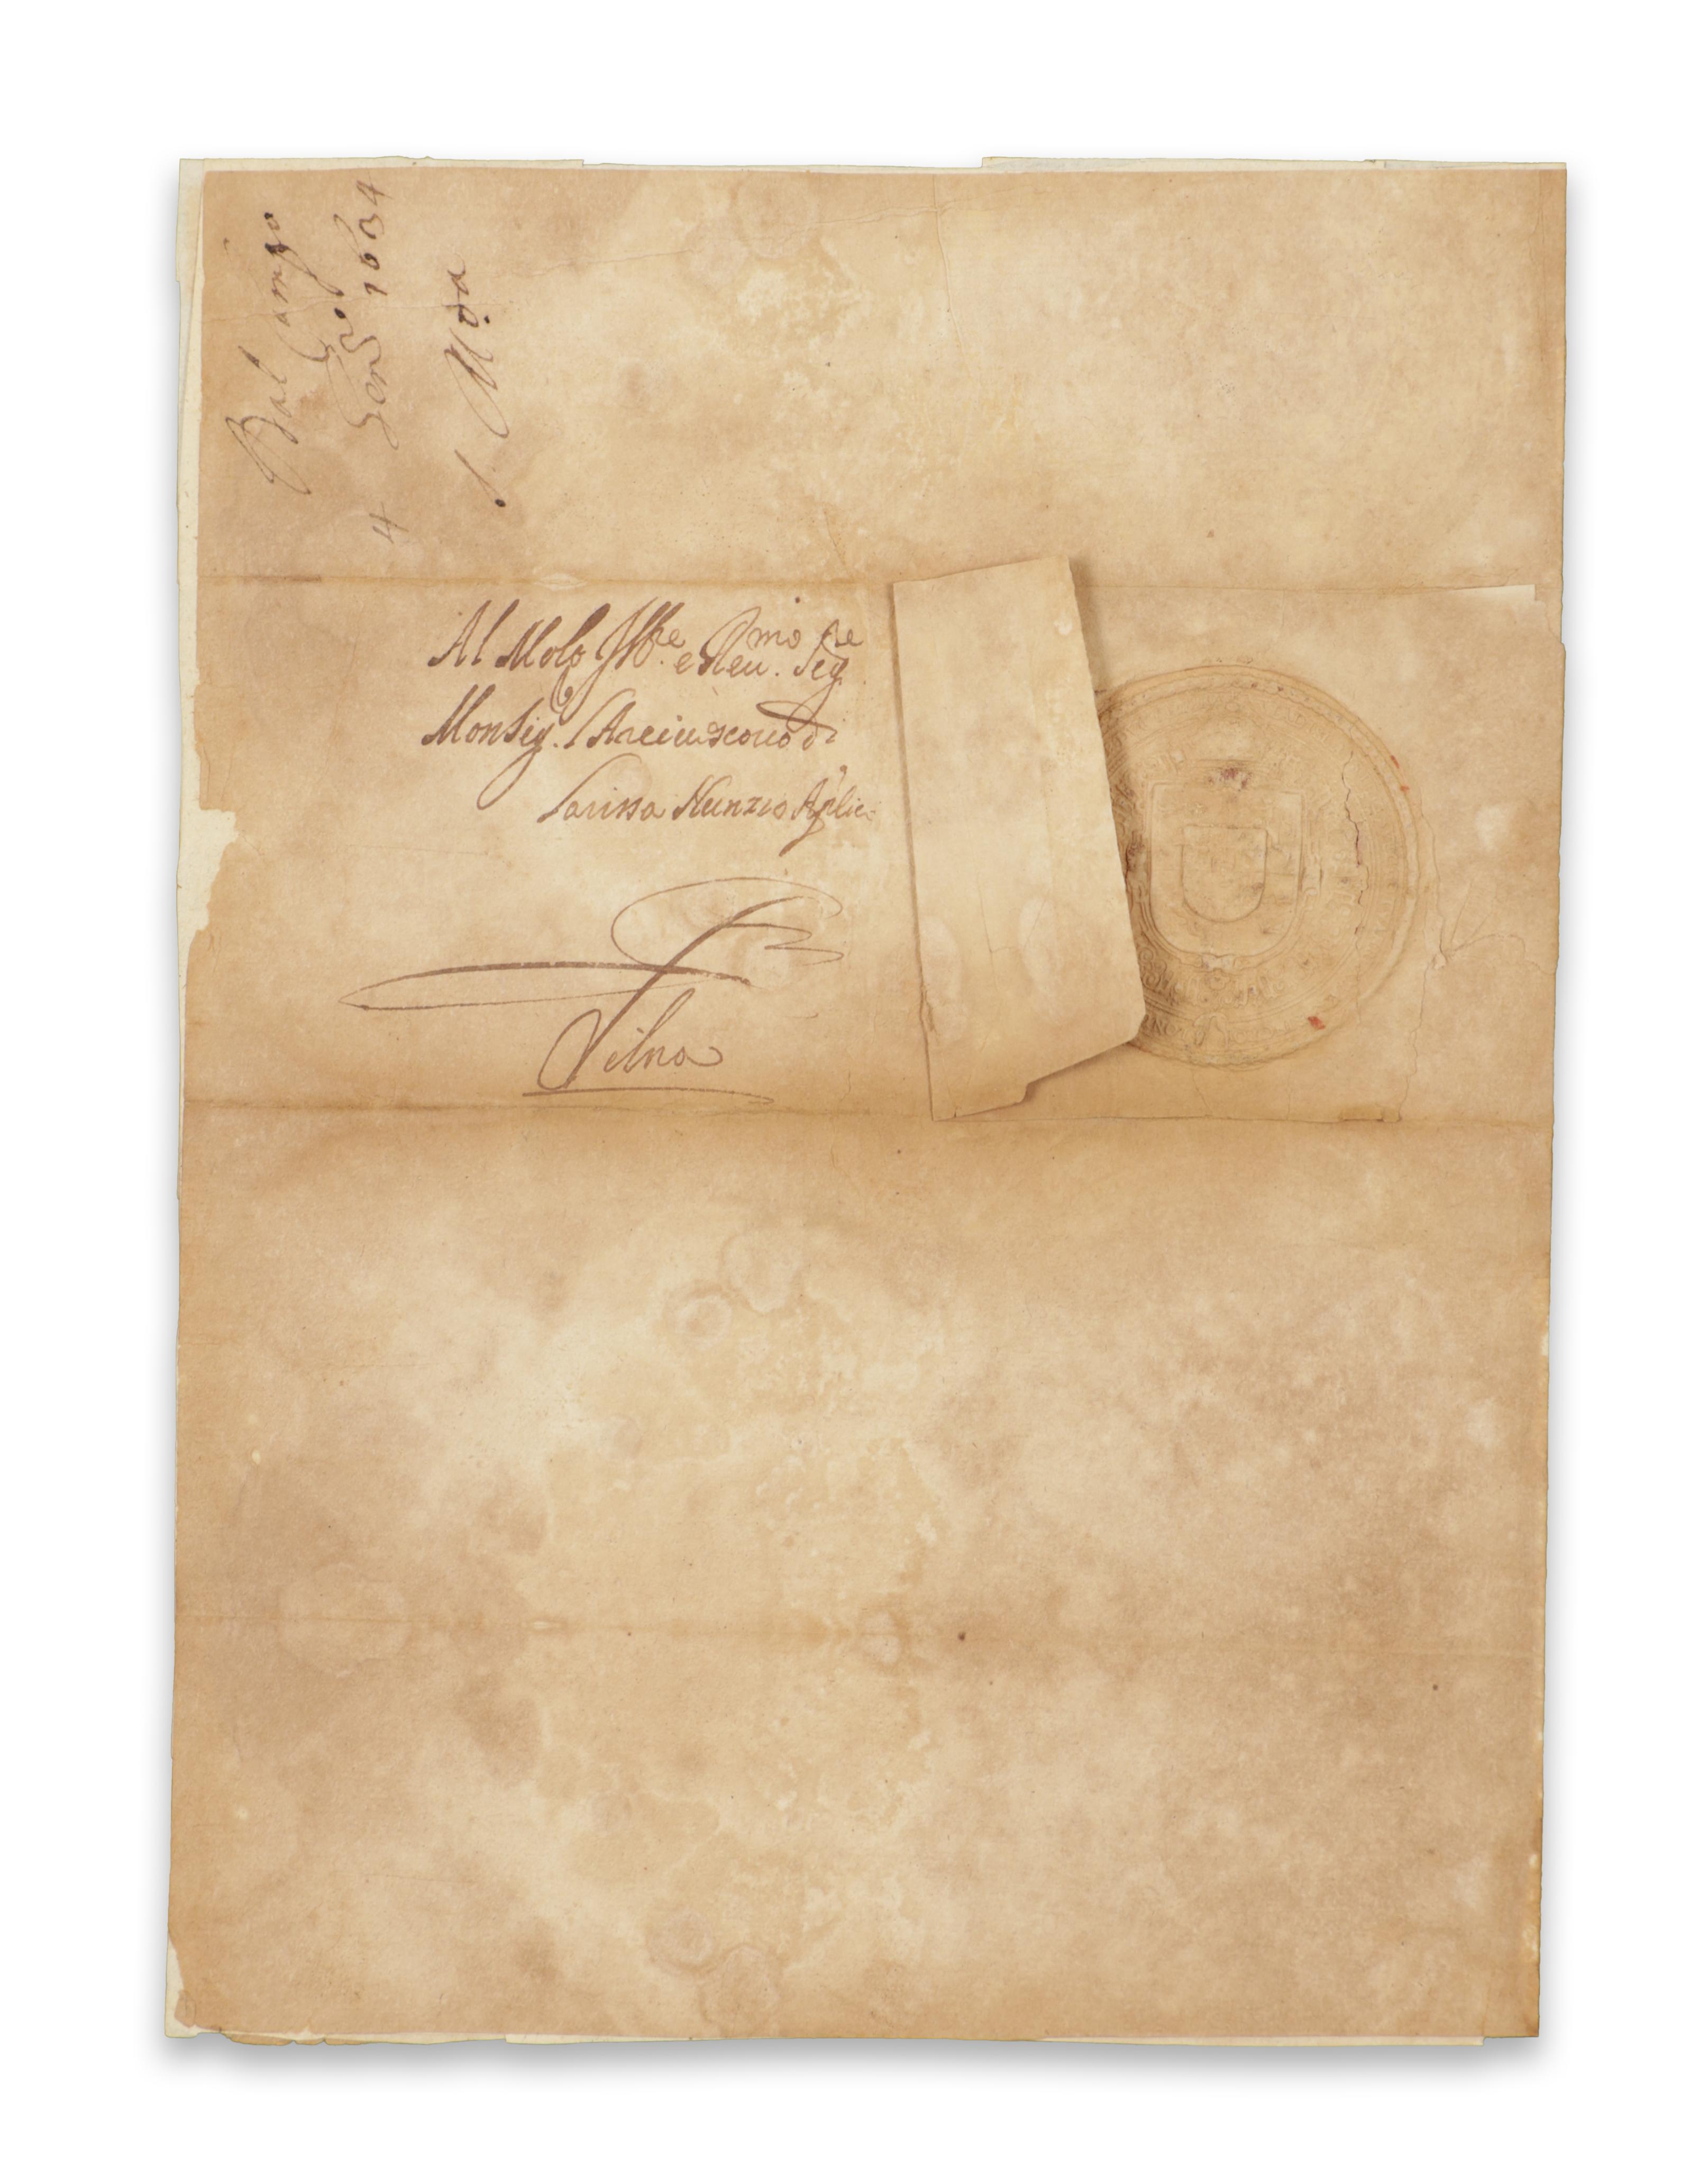 Dal Campo
4 1634
S. Mtà
Al Molto Ill.re e Reu.mo Sig.re
Monsig.r l'Arciuescouo di
Larissa Nunzio Aplico
Vilna